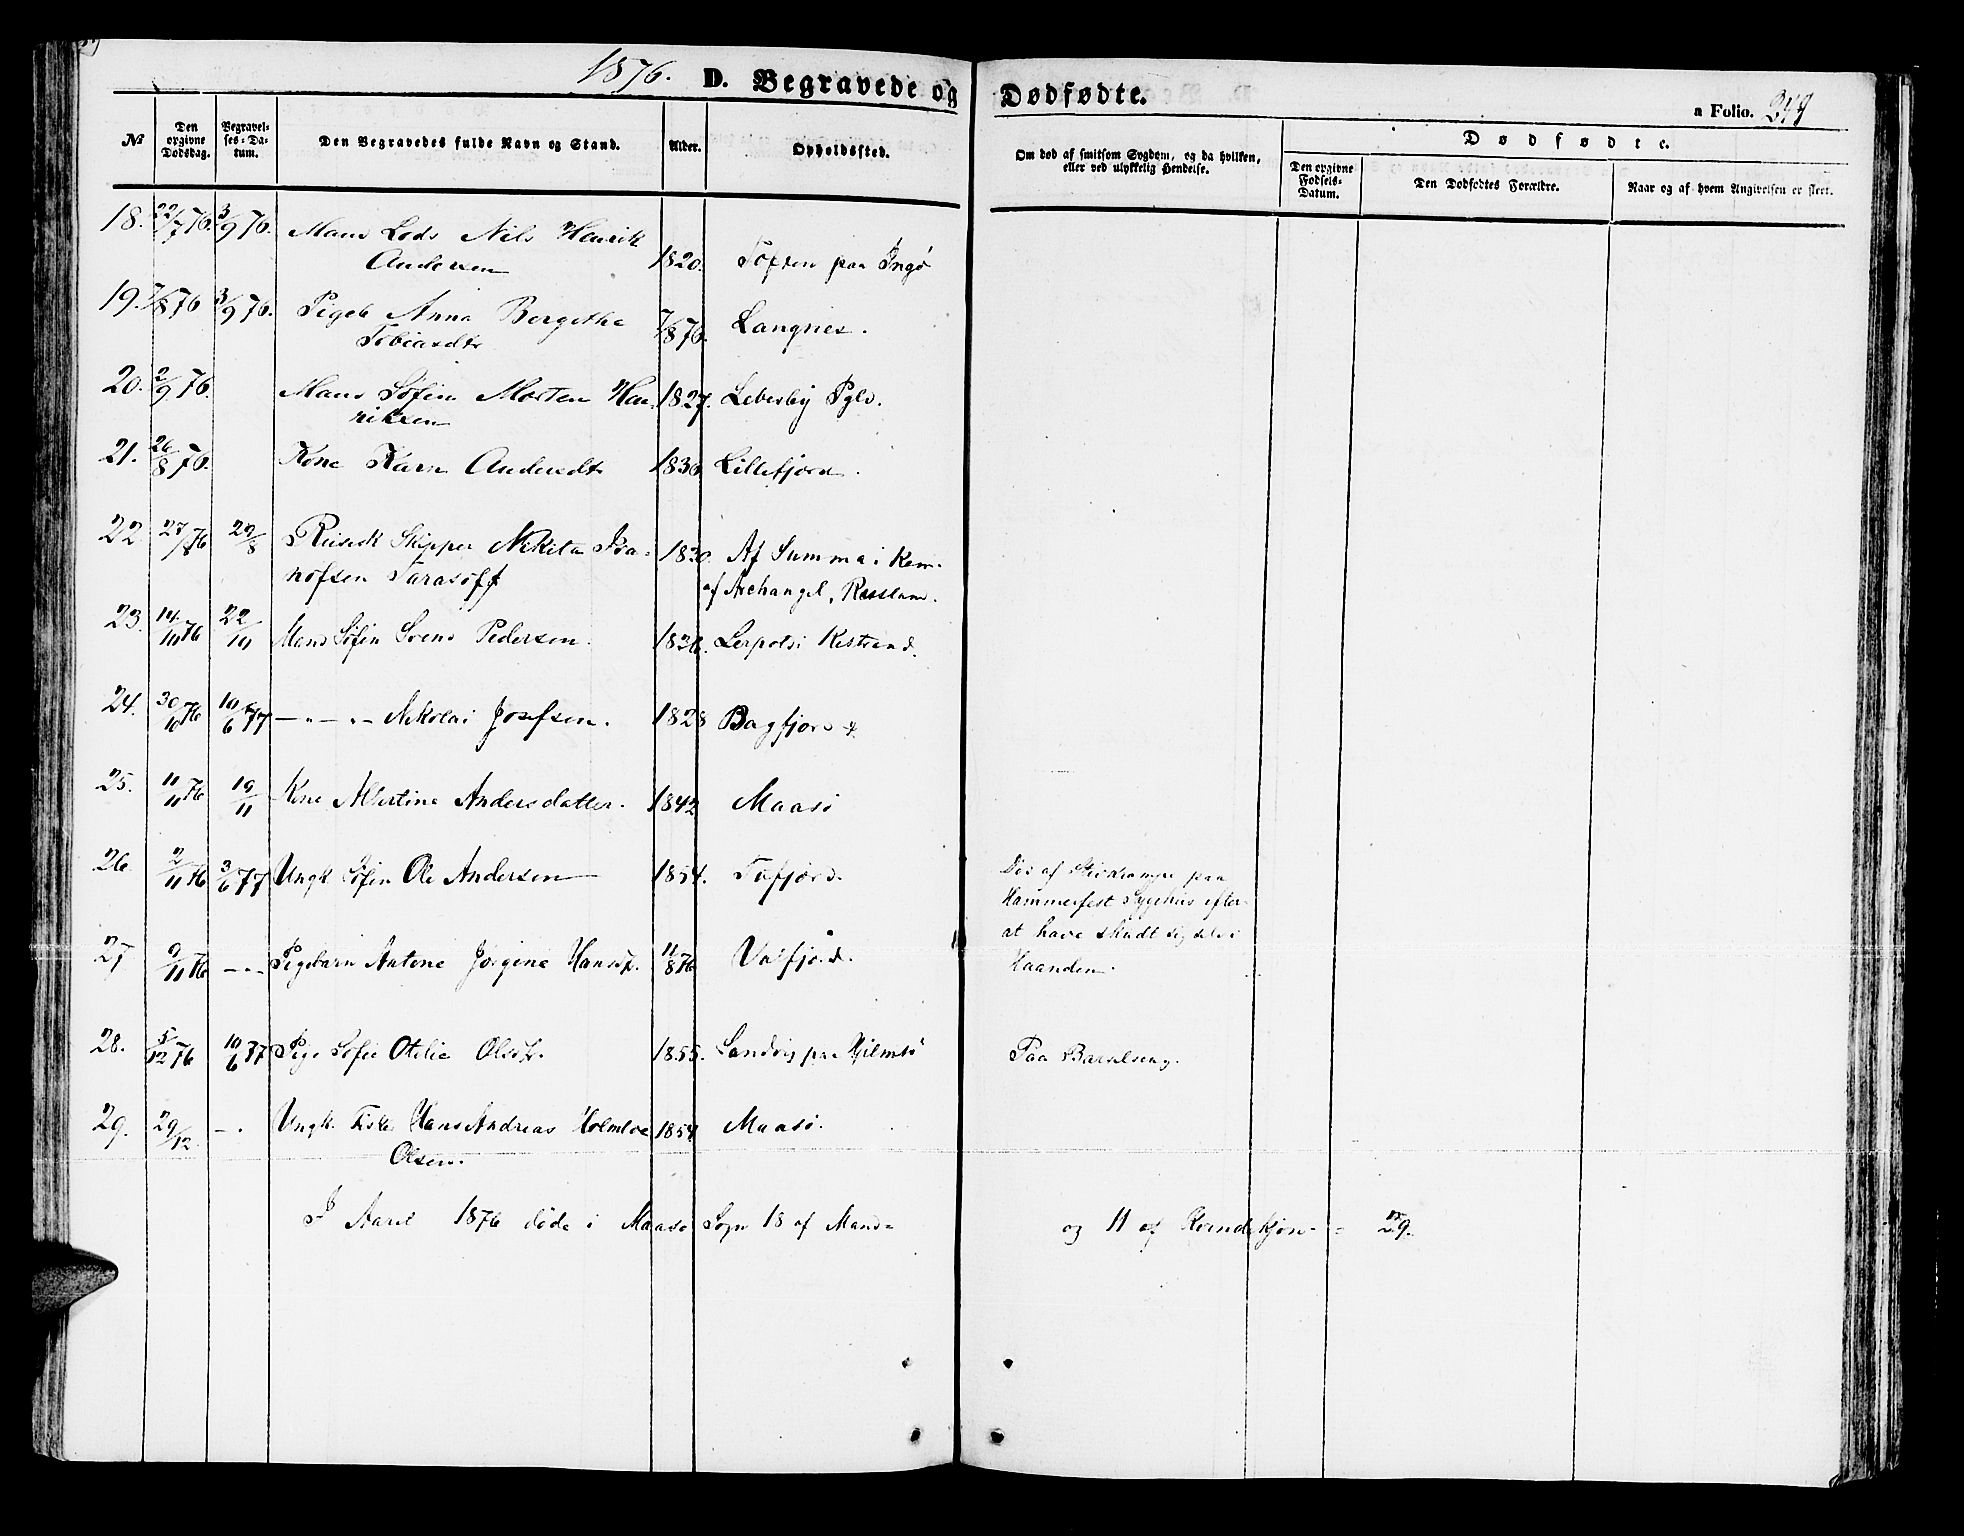 1876. D. Begravede og Dødfødte.
a Folio. 249
№
Den opgivne Dødsdag.
Begravelses-Datum.
Den Begravedes fulde Navn og Stand.
Alder.
Opholdssted.
Om død af smitsom Sygdom, og da hvilken,
eller ved ulykkelig Hendelse.
Dødfødte.
Den opgivne Fødsels-Datum.
Den Dødfødtes Forældre.
Naar og af hvem Angivelsen er skeet.
18. 22/7 76. 3/9 76. Mand Lods Nils Henrik
Andersen 1820. Toften paa Ingø
19. 7/8 76 3/9 76. Pigeb Anna Bergitha
Tobiasdtr 7/8 76. Langnes.
20. 2/9 76. Mand Søfin Morten Hen-
riksen 1827. Lebesby Pgld.
21. 26/8 76. Kone Karn Andersdtr 1830 Lillefjord.
22 27/8 76 29/8 Russisk Skipper Nikita
nofsen Tarasoff 1830. Af Summa i Kem
af Archangel, Russland.
23. 14/10 76 22/10 Mand Søfin Svend Pedersen. Kistrand.
24. 30/10 76 10/6 77 — „ — „ — Nikolai Josefsen. 1828 Bagfjord
25. 11/11 76 19/11 Kone Albertine Andersdatter. 1842 Maasø
26. 2/11 76 3/6 77 Ungk Søfin Ole Andersen 1854. Tufjord.
Død af Stivkrampe paa
Hammerfest Sygehus efter
at have skudt sig selv i
Haanden.
27 9/11 76 — „ — Pigebarn Antone Jørgine Hansd. 11/8 76
28. 5/12 76 10/6 77 Pige Søfin Otilie Olsd. 1855. Sandvig paa Hjelmsø Paa Barselseng.
29. 29/12 — „ Ungk. Fisker Hans Andreas
Olsen. 1854 Maasø.
I Aaret 1876 døde i Maasø Sogn 18 af Mand- og 11 af Kvindekjøn = 29.